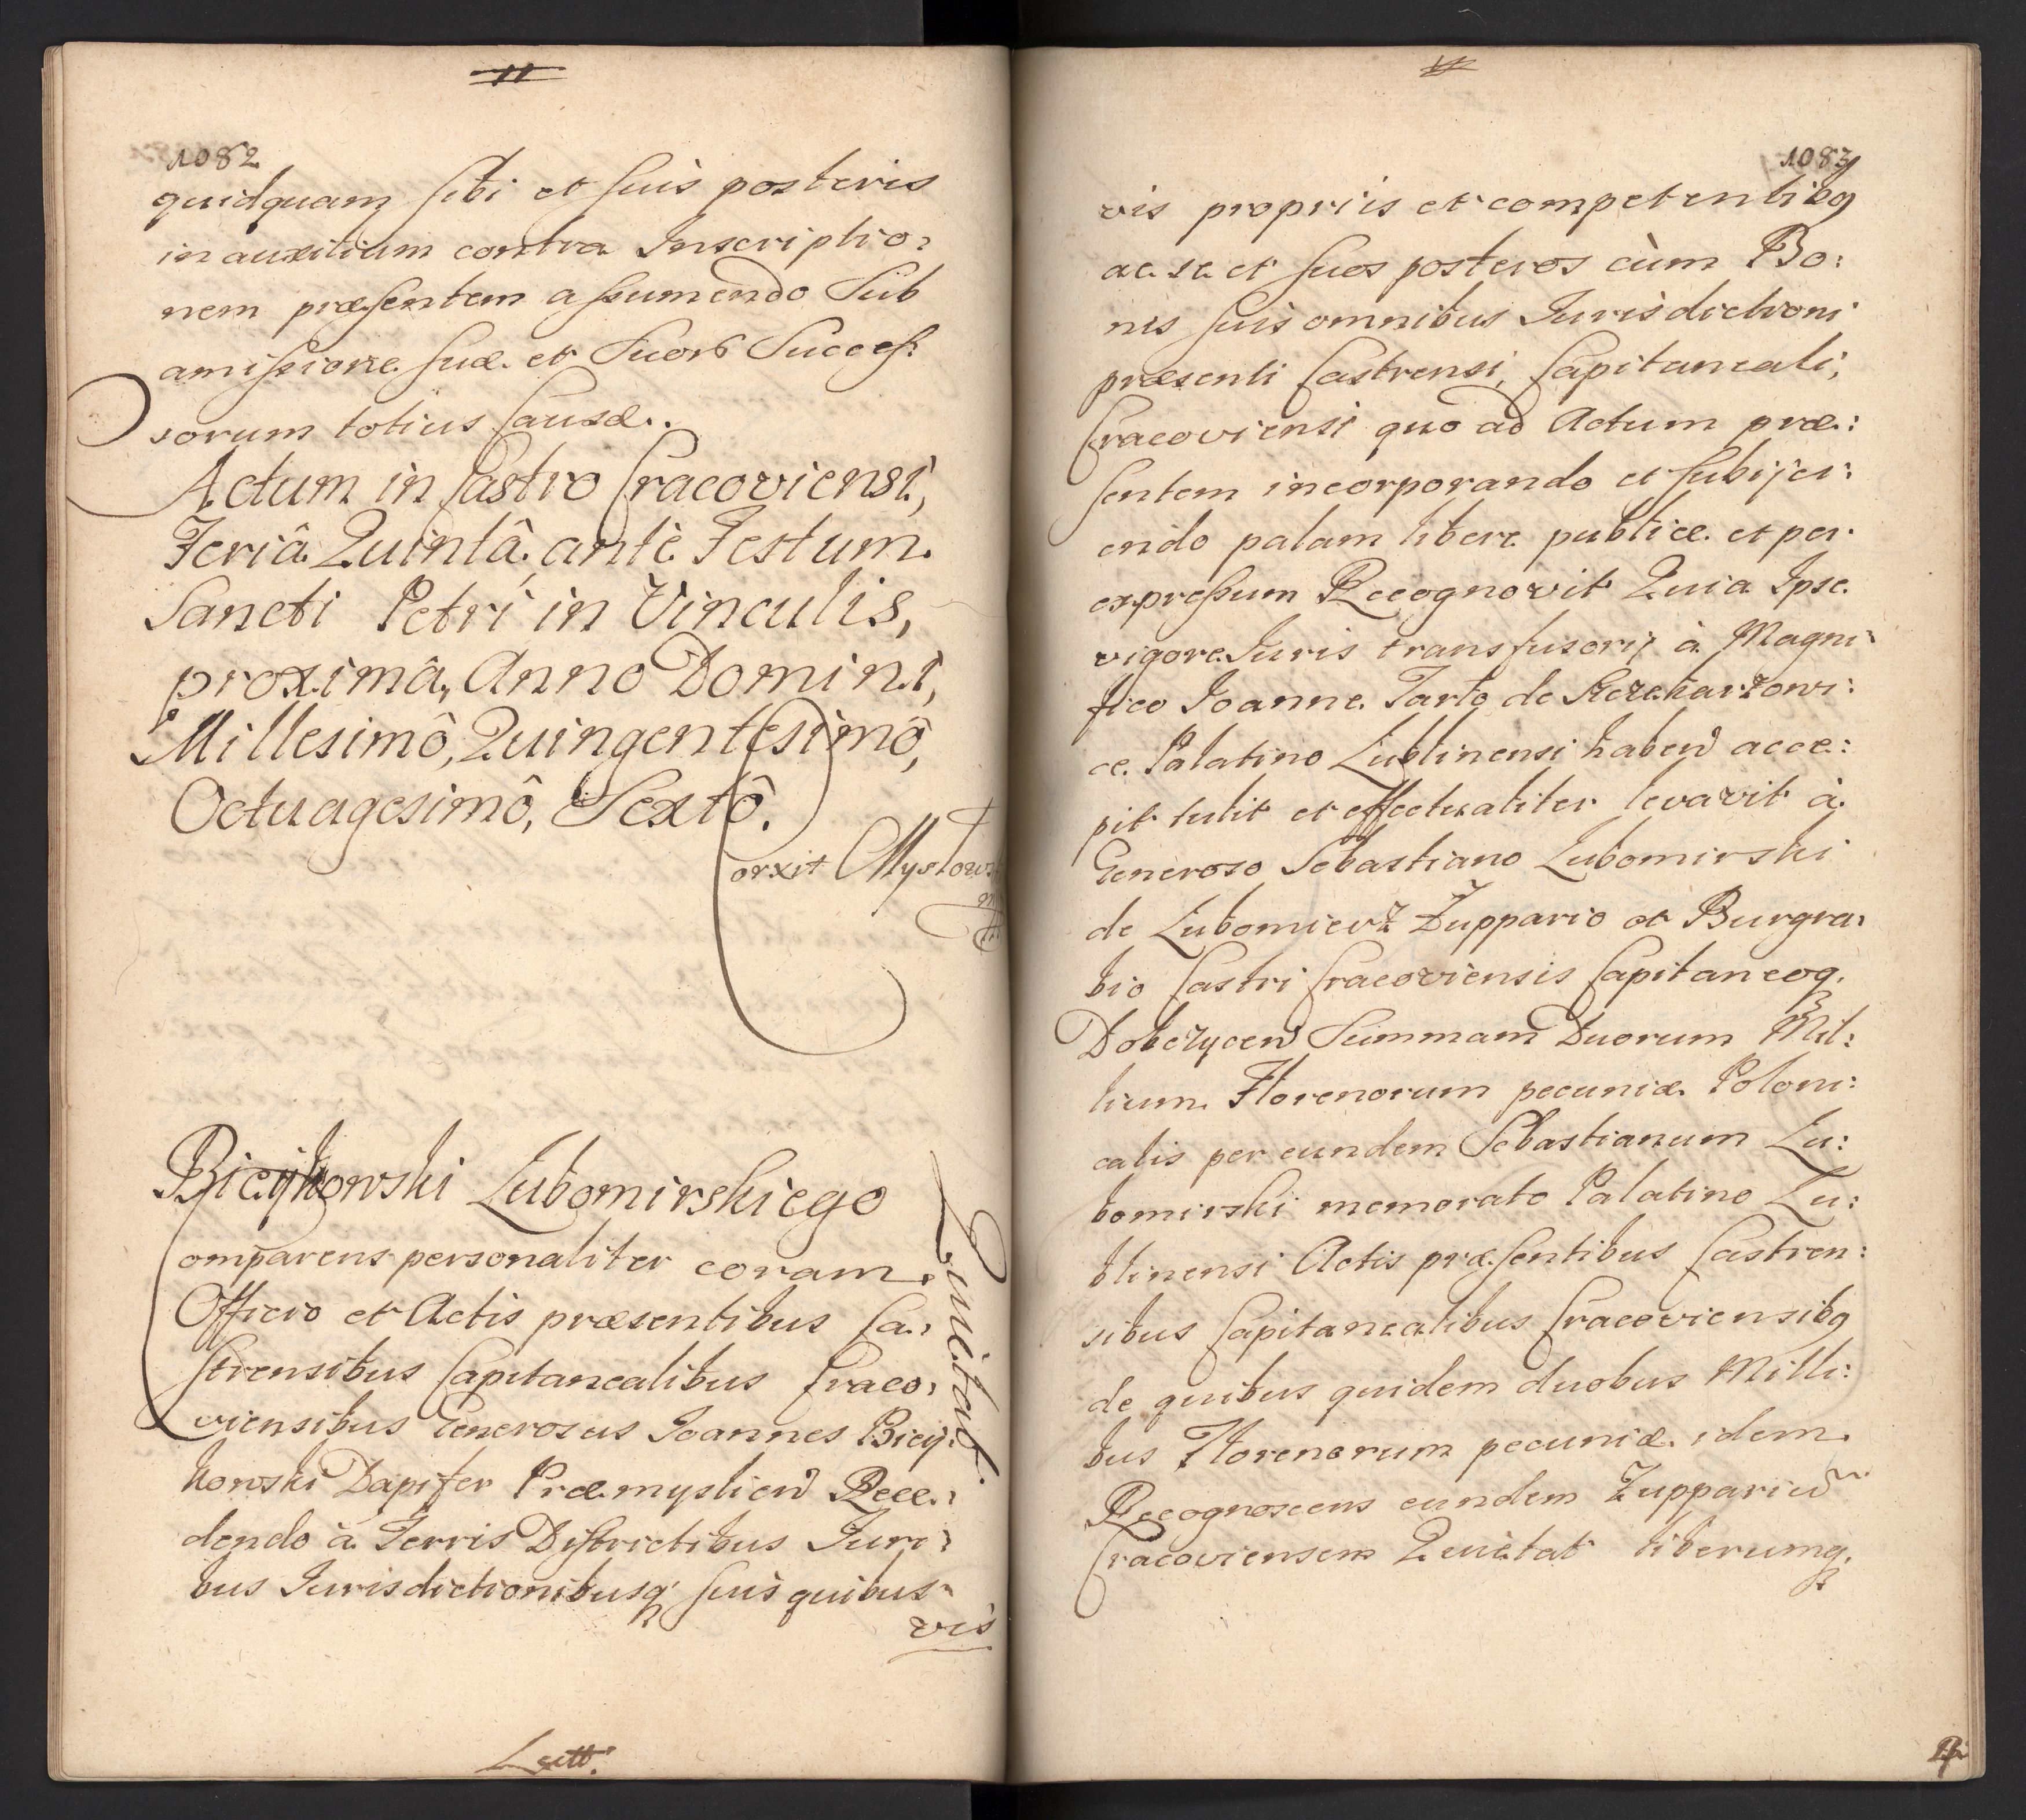 1082
quidquam sibi et suis posteris
in auxilium contra Inscriptio:
nem præsentem assumendo Sub
amissione suæ et Suorb Success:
sorum totius Causæ.
Actum in Castro Cracoviensi,
Feriâ Quintâ, antè Festum
Sancti Petri in Vinculis,
proximâ, Anno Domini,
Millesimô, Quingentesimô,
Octuagesimô, Sextô.
Corxit Mysłows
Bieykowski Lubomirskiego
Comparens personaliter coram
Quietat.
Officio et Actis præsentibus Ca:
strensibus Capitanealibus Craco:
viensibus Generosus Joannes Biey:
kowski Dapifer Præmysłien Rece:
dendo à Terris Districtibus Juri:
bus Jurisdictionibusq suis quibus
vis
1083
vis propriis et competentibq
ac se et suos posteros cùm Bo:
nis suis omnibus Jurisdictioni
præsenti Castrensi, Capitaneali,
Cracoviensi quo ad Actum præ:
sentem incorporando et subijci:
endo palam libere publice et per
expressum Recognovit Quia Ipse
vigore Juris transfusorij à Magni:
fico Joanne Tarło de Sczekarzowi:
ce Palatino Lublinensi haben acce:
pit tulit et effectualiter levavit à
Generoso Sebastiano Lubomirski
de Lubomierz Zuppario et Burgra:
bio Castri Cracoviensis Capitaneoq
Dobczycen Summam Duorum Mil:
lium Florenorum pecuniæ Poloni:
calis per eundem Sebastianum Lu:
bomirski memorato Palatino Lu:
blinensi Actis præsentibus Castren:
sibus Capitanealibus Cracoviensibq
de quibus quidem duobus Milli:
bus Florenorum pecuniæ idem
Recognoscens eundem Zupparium
Cracoviensem Quietat liberumq